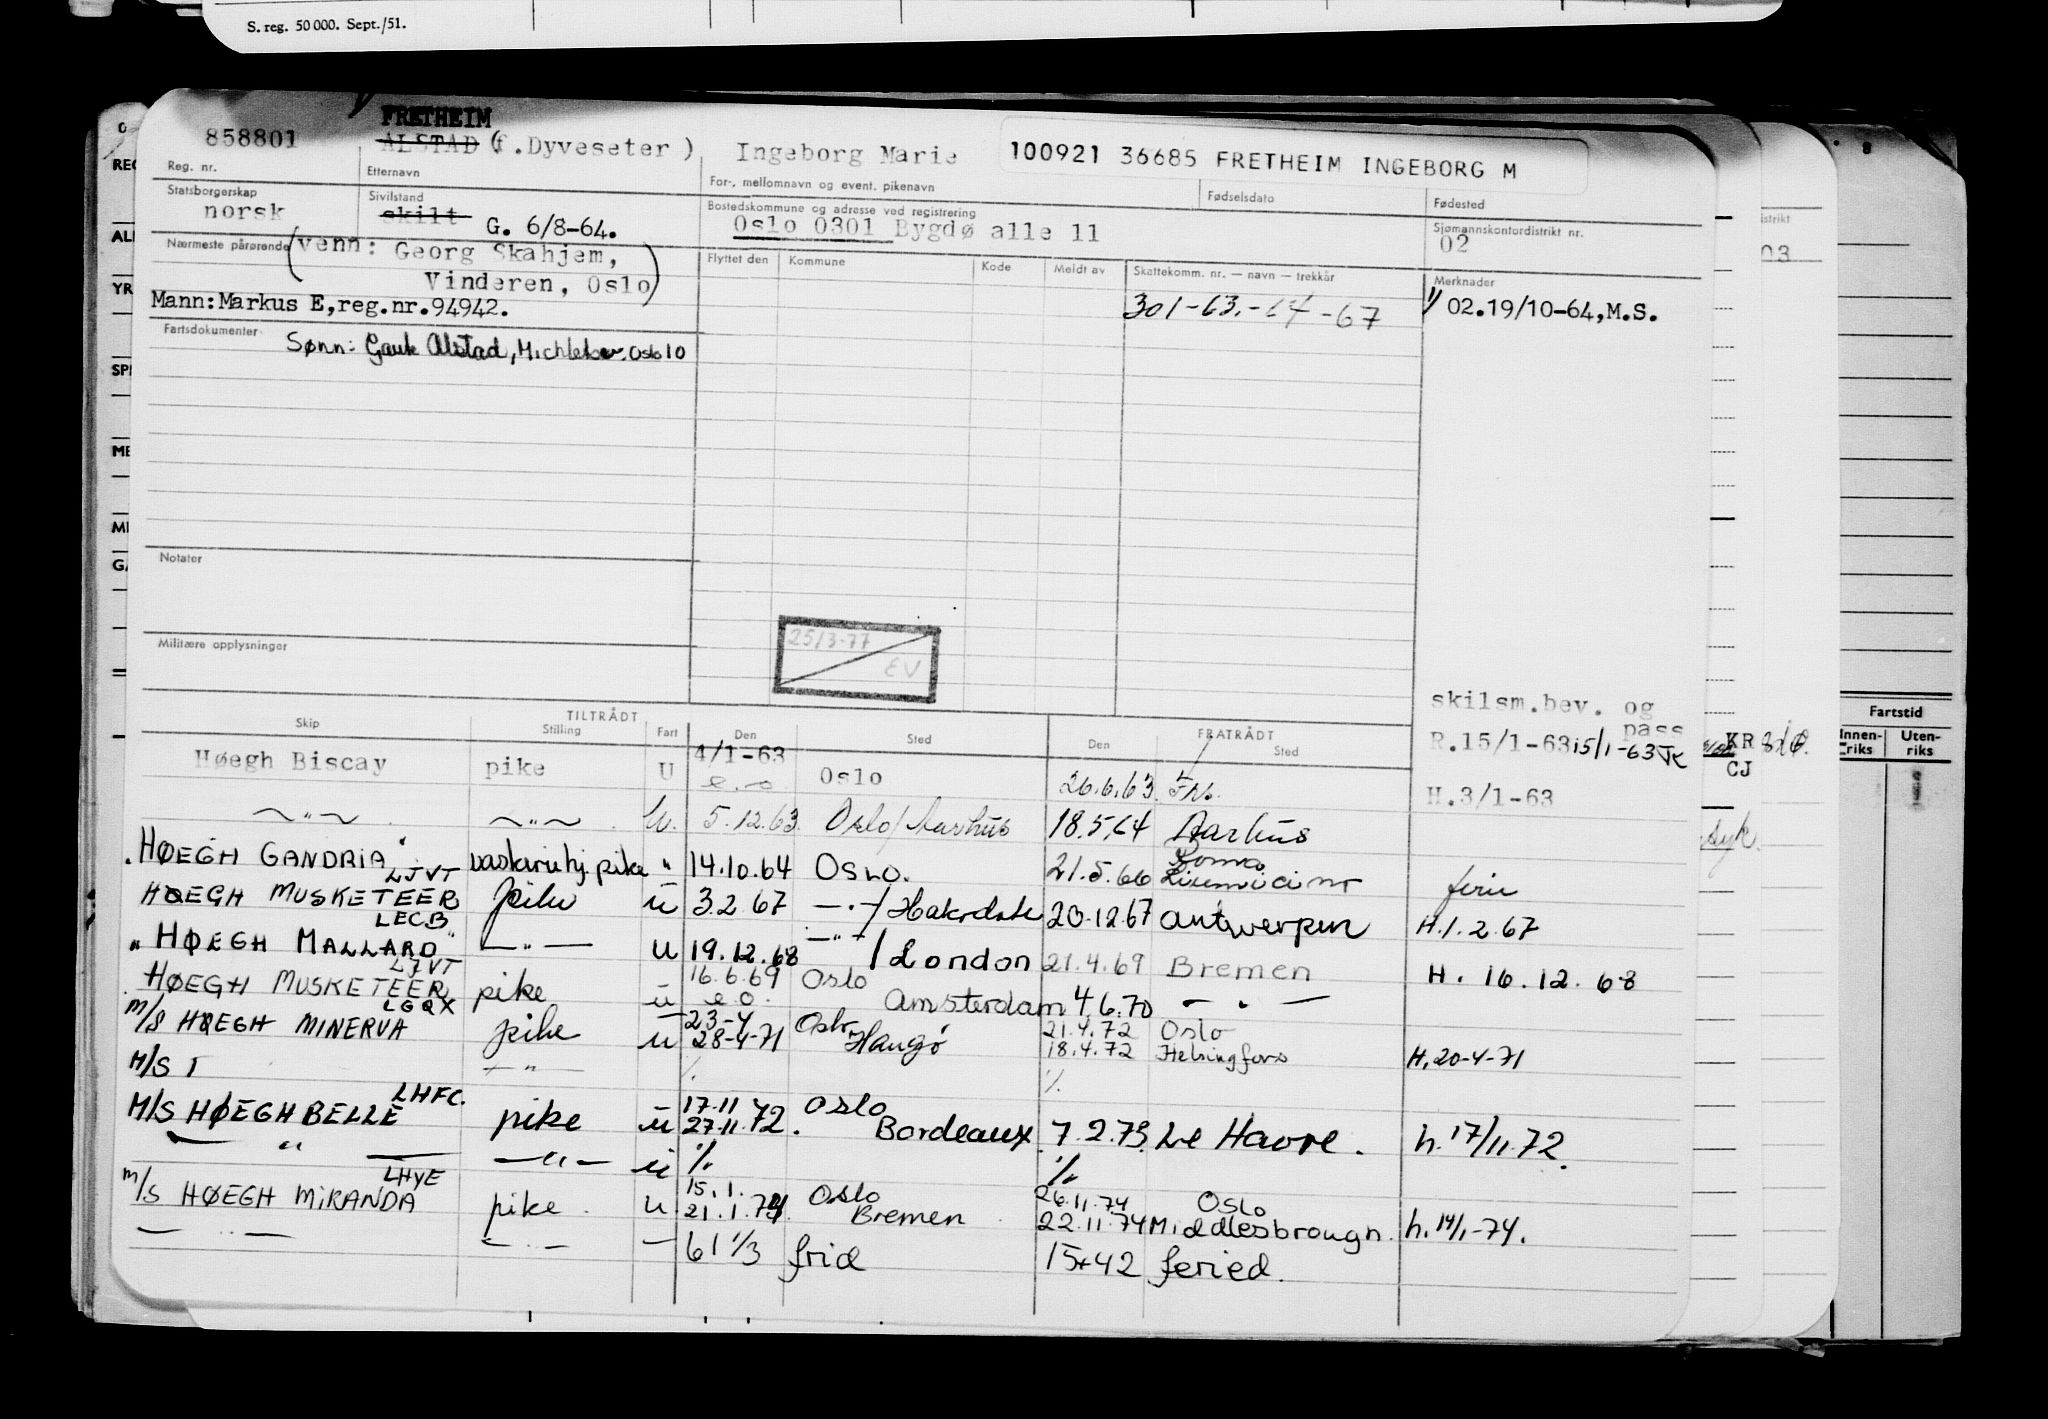 S. reg. 50 000. Sept./51.
FRETHEIM
858801 ALSTAD (f.Dyveseter) Ingeborg Marie 100921 36685 FRETHEIM INGEBORG M
Reg. nr. Etternavn For-, mellomnavn og event. pikenavn Fødselsdato Fødested
Statsborgerskap Sivilstand Bostedskommune og adresse ved registrering Sjømannskontordistrikt nr.
norsk skilt G. 6/8-64. Oslo 0301 Bygdø alle 11 02
Nærmeste pårørende (venn: Georg Skahjem,
Vinderen, Oslo)
Flyttet den Kommune Kode Meldt av Skattekomm. nr. — navn — trekkår Merknader
Mann: Markus E, reg.nr. 94942. 301-63.-64-67 1/ 02.19/10-64, M.S.
Fartsdokumenter
Sønn: Gauk Alstad, Oslo 10
Notater
25/3-77
EV
Militære opplysninger
skilsm.bev. og
pass
R.15/1-63 15/1-63
H.3/1-63
TILTRÅDT FRATRÅDT
Skip Stilling Fart Den Sted Den Sted
Høegh Biscay pike U 4/1-63 e.o Oslo 26.6.63.
— " — — " — U. 5.12.63 Oslo/Aarhus 18.5.64 Aarhus
HØEGH GANDRIA vaskerihj. pike " 14.10.64 OSLO. 21.5.66 Roma ferie
LJVT
HØEGH MUSKETEER pike u 3.2.67 — " — / 20.12.67 Antwerpen H.1.2.67
LECB
" HØEGH MALLARD " — " — u 19.12.68 — " — / London 21.4.69 Bremen H. 16.12.68
LJVT
HØEGH MUSKETEER pike u 16.6.69 e o. Oslo Amsterdam 4.6.70 — " —
LGQX
M/S HØEGH MINERVA pike u 23-4 28-4-71 Oslo Hangø 21.4.72 Oslo
18.4.72 Helsingfors H. 20-4-71
M/S T — " — ⁒ ⁒
LHFC.
M/S HØEGH BELLE pike u 17.11 27.11.72. Oslo Bordeaux 7.2.73. Le Havre. h. 17/11.72.
— " — — " — u ⁒ ⁒
LHYE
M/S HØEGH MIRANDA pike u 15.1. 21.1.74 Oslo Bremen 26.11.74 Oslo
22.11.74 Middlesbrough h. 14/1-74.
— " — — " — — 61 1/3 frid 15+42 feried.
Fartstid
Innen-riks Uten-riks
KR
CJ